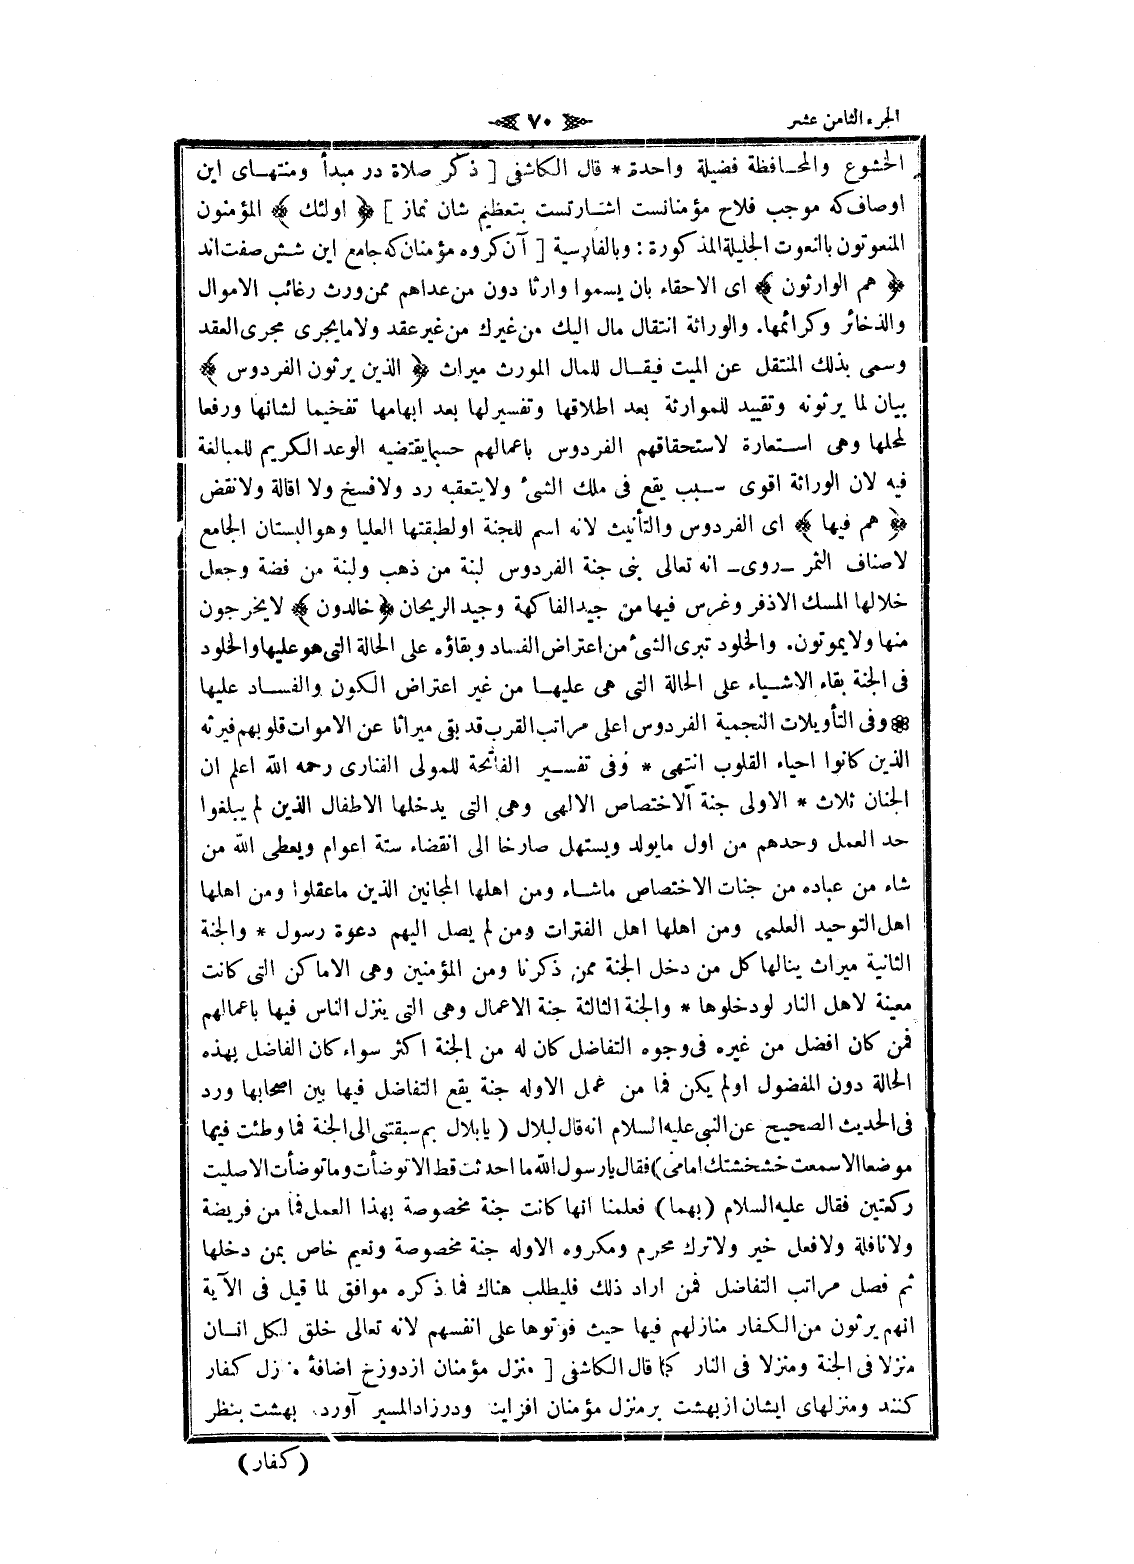 الجزء الثامن عشر
٧٠
الخشوع والمحافظة فضيلة واحدة * قال الكاشفى [ ذكر صلاة در مبدأ ومنتهاى اين
اوصاف كه موجب فلاح مؤمنانست اشارتست بتعظيم شان نماز ] ﴿ اولئك ﴾ المؤمنون
المنعوتون بالنعوت الجليلة المذكورة : وبالفارسية [ آن كروه مؤمنان كه جامع اين شش صفت اند
﴿ هم الوارثون ﴾ اى الاحقاء بان يسموا وارثا دون من عداهم ممن ورث رغائب الاموال
والذخائر وكرائمها. والوراثة انتقال مال اليك من غيرك من غير عقد ولا ما يجرى مجرى العقد
وسمى بذلك المنتقل عن الميت فيقال للمال المورث ميراث ﴿ الذين يرثون الفردوس ﴾
بيان لما يرثونه وتقييد للموارثة بعد اطلاقها وتفسير لها بعد ابهامها تفخيما لشانها ورفعا
لمحلها وهى استعارة لاستحقاقهم الفردوس باعمالهم حسبما يقتضيه الوعد الكريم للمبالغة
فيه لان الوراثة اقوى سبب يقع فى ملك الشئ ولا يتعقبه رد ولا فسخ ولا اقالة ولا نقض
﴿ هم فيها ﴾ اى الفردوس والتأنيث لانه اسم للجنة او لطبقتها العليا وهو البستان الجامع
لاصناف الثمر ـ روى ـ انه تعالى بنى جنة الفردوس لبنة من ذهب ولبنة من فضة وجعل
خلالها المسك الاذفر وغرس فيها من جيد الفاكهة وجيد الريحان ﴿ خالدون ﴾ لا يخرجون
منها ولا يموتون. والخلود تبرى الشئ من اعتراض الفساد وبقاؤه على الحالة التى هو عليها والخلود
فى الجنة بقاء الاشياء على الحالة التى هى عليها من غير اعتراض الكون والفساد عليها
❁ وفى التأويلات النجمية الفردوس اعلى مراتب القرب قد بقى ميراثا عن الاموات قلوبهم فيرثه
الذين كانوا احياء القلوب انتهى * وفى تفسير الفاتحة للمولى الفنارى رحمه الله اعلم ان
الجنان ثلاث * الاولى جنة الاختصاص الالهى وهى التى يدخلها الاطفال الذين لم يبلغوا
حد العمل وحدهم من اول مايولد ويستهل صارخا الى انقضاء ستة اعوام ويعطى الله من
شاء من عباده من جنات الاختصاص ماشاء ومن اهلها المجانين الذين ماعقلوا ومن اهلها
اهل التوحيد العلمى ومن اهلها اهل الفترات ومن لم يصل اليهم دعوة رسول * والجنة
الثانية ميراث ينالها كل من دخل الجنة ممن ذكرنا ومن المؤمنين وهى الاماكن التى كانت
معينة لاهل النار لو دخلوها * والجنة الثالثة جنة الاعمال وهى التى ينزل الناس فيها باعمالهم
فمن كان افضل من غيره فى وجوه التفاضل كان له من الجنة اكثر سواء كان الفاضل بهذه
الحالة دون المفضول اولم يكن فما من عمل الاوله جنة يقع التفاضل فيها بين اصحابها ورد
فى الحديث الصحيح عن النبى عليه السلام انه قال لبلال ( يابلال بم سبقتنى الى الجنة فما وطئت فيها
موضعا الا سمعت خشخشتك امامى ) فقال يارسول الله ما احدثت قط الا توضأت وما توضأت الا صليت
ركعتين فقال عليه السلام ( بهما ) فعلمنا انها كانت جنة مخصوصة بهذا العمل فما من فريضة
ولا نافلة ولا فعل خير ولا ترك محرم ومكروه الاوله جنة مخصوصة ونعيم خاص بمن دخلها
ثم فصل مراتب التفاضل فمن اراد ذلك فليطلب هناك فما ذكره موافق لما قيل فى الآية
انهم يرثون من الكفار منازلهم فيها حيث فوتوها على انفسهم لانه تعالى خلق لكل انسان
منزلا فى الجنة ومنزلا فى النار كما قال الكاشفى [ منزل مؤمنان ازدوزخ اضافۀ منزل كفار
كنند ومنزلهاى ايشان ازبهشت برمنزل مؤمنان افزايند ودرزاد المسير آورد. بهشت بنظر
( كفار )